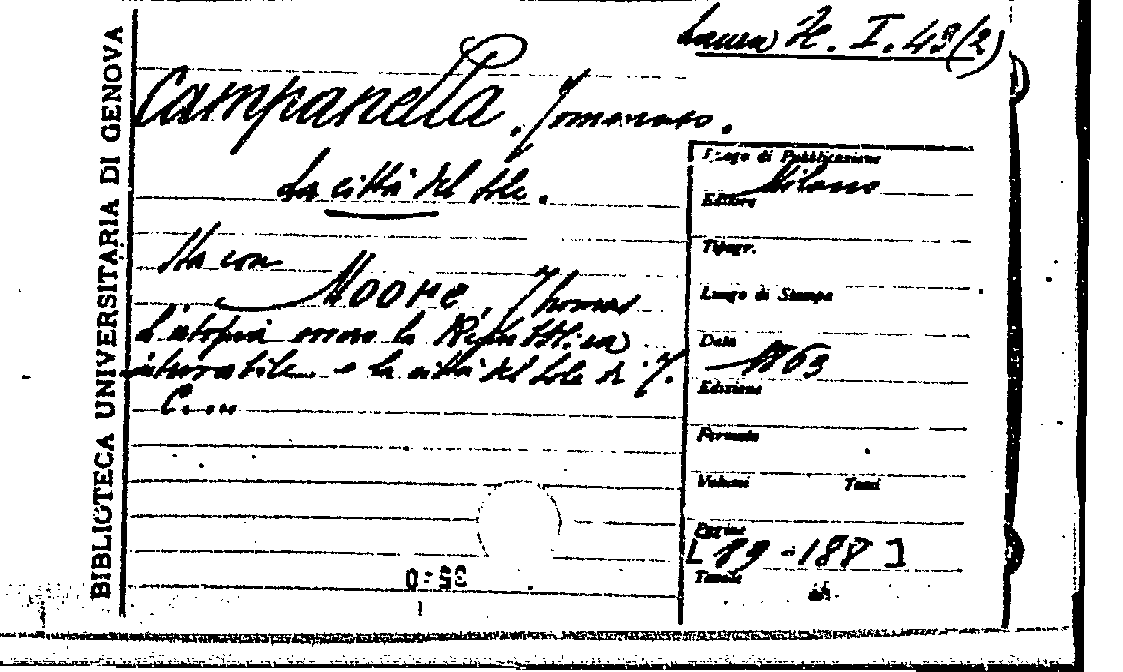 Laura H. I. 49(2)
BIBLIOTECA UNIVERSITARIA DI GENOVA
Campanella, Tommaso.
La città del Sole.
Sta con
Moore, Thomas
L'utopia ovvero la Repubblica
introvabile e la città del Sole di T.
C....
Luogo di Pubblicazione
Milano
Editore
Tipogr.
Luogo di Stampa
Data
1863
Edizione
Formato
Volumi Tomi
Pagine
[ 89-188 ]
Tavole